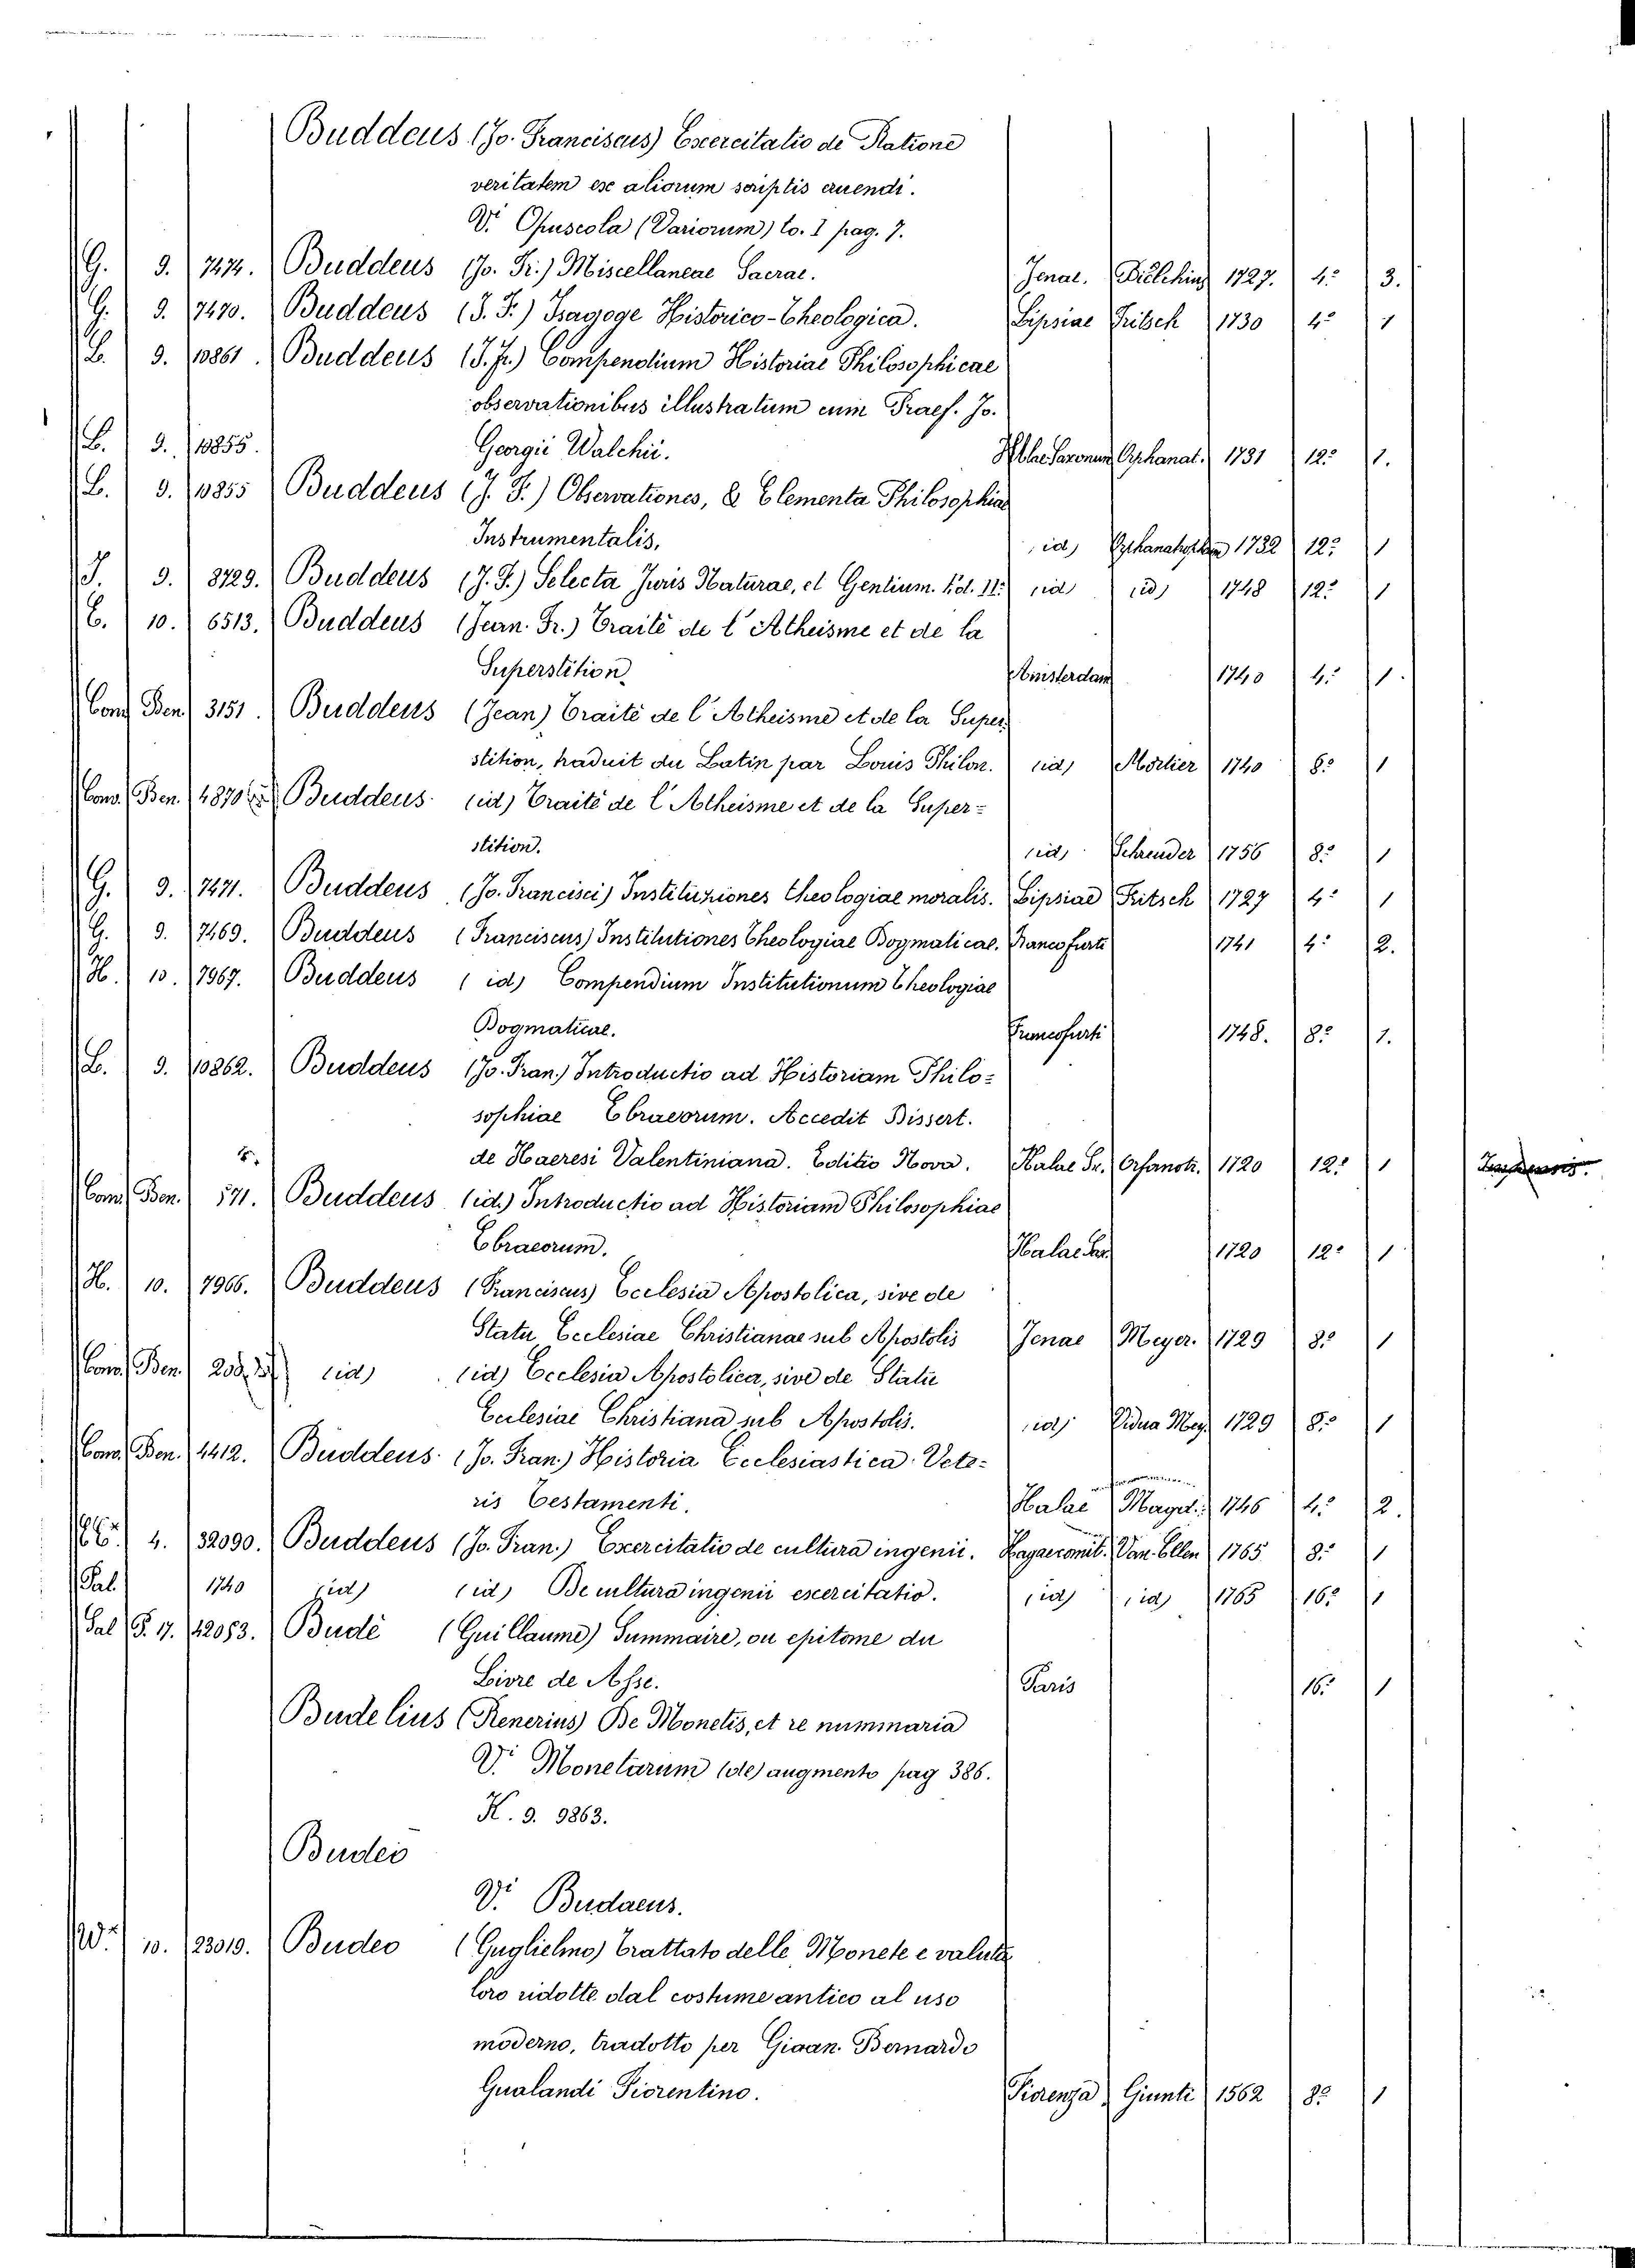 Buddeus (Jo. Franciscus) Exercitatio de Ratione
veritatem ex aliorum scriptis eruendi.
Vi Opuscola (Variorum) to. I pag. 7.
G. 9. 7474. Buddeus (Jo. Fr.) Miscellaneae Sacrae. Jenae. 1727. 4º 3.
G. 9. 7470. Buddeus (J. F.) Isagoge Historico-Theologica. Lipsiae Fritsch 1730 4º 1
L. 9. 10861. Buddeus (J. Fr.) Compendium Historiae Philosophicae
observationibus illustratum cum Praef. Jo.
L. 9. 10855. Georgii Walchii. Hallae Saxonum Orphanat. 1731 12º 1.
L. 9. 10855 Buddeus (J. F.) Observationes, & Elementa Philosophiae
Instrumentalis, id) 1732 12º 1
J. 9. 8729. Buddeus (J. F.) Selecta Juris Naturae, et Gentium. Vol. II. id) id) 1748 12º 1
C. 10. 6513. Buddeus (Jean. Fr.) Traité de l'Atheisme et de la
Superstition. Amsterdam 1740 4º 1.
Com. Ben. 3151. Buddeus (Jean) Traité de l'Atheisme et de la Super
stition, traduit du Latin par Louis Philon. id) Mortier 1740 8º 1
Com. Ben. 4870 Buddeus (id) Traité de l'Atheisme et de la Super=
stition. id) Schreuder 1756 8º 1
G. 9. 7471. Buddeus (Jo. Francisci) Instituziones theologiae moralis. Lipsiae Fritsch 1727 4º 1
G. 9. 7469. Buddeus (Franciscus) Institutiones Theologiae Dogmaticae. Francofurti 1741 4º 2.
H. 10. 7967. Buddeus (id) Compendium Institutionum Theologiae
Dogmaticae. Francofurti 1748. 8º 1.
L. 9. 10862. Buddeus (Jo. Fran.) Introductio ad Historiam Philo=
sophiae Ebraeorum. Accedit Dissert.
de Haeresi Valentiniana. Editio Nova. Halae Sr. Orfanotr. 1720 12º 1
Com. Ben. 571. Buddeus (id.) Introductio ad Historiam Philosophiae
Ebraeorum. Halae 1720 12º 1
H. 10. 7966. Buddeus (Franciscus) Ecclesia Apostolica, sive de
Statu Ecclesiae Christianae sub Apostolis Jenae Meyer. 1729 8º 1
Com. Ben. id) (id) Ecclesia Apostolica, sive de Statu
Ecclesiae Christiana sub Apostolis. id) Vidua Mey. 1729 8º 1
Com. Ben. 4412. Buddeus (Jo. Fran.) Historia Ecclesiastica Vete=
ris Testamenti. Halae Magd. 1746 4º 2.
4. 32090. Buddeus (Jo. Fran.) Exercitatio de cultura ingenii. Hagaecomit. Van-Ellen 1765 8º 1
Pal. 1740 (id) (id) De cultura ingenii exercitatio. (id) (id) 1765 16º 1
Sal S. 17. 42053. Budé (Guillaume) Summaire, ou epitome du
Livre de Asse. Paris 16º 1
Budelius (Renerius) De Monetis, et re nummaria
Vi Monetarum (de) augmento pag 386.
K. 9. 9863.
Budeo
Vi Budaeus.
W. 10. 23019. Budeo (Guglielmo) Trattato delle Monete e valuta
loro ridotte dal costume antico al uso
moderno, tradotto per Giovan. Bernardo
Gualandi Fiorentino. Fiorenza Giunti 1562 8º 1